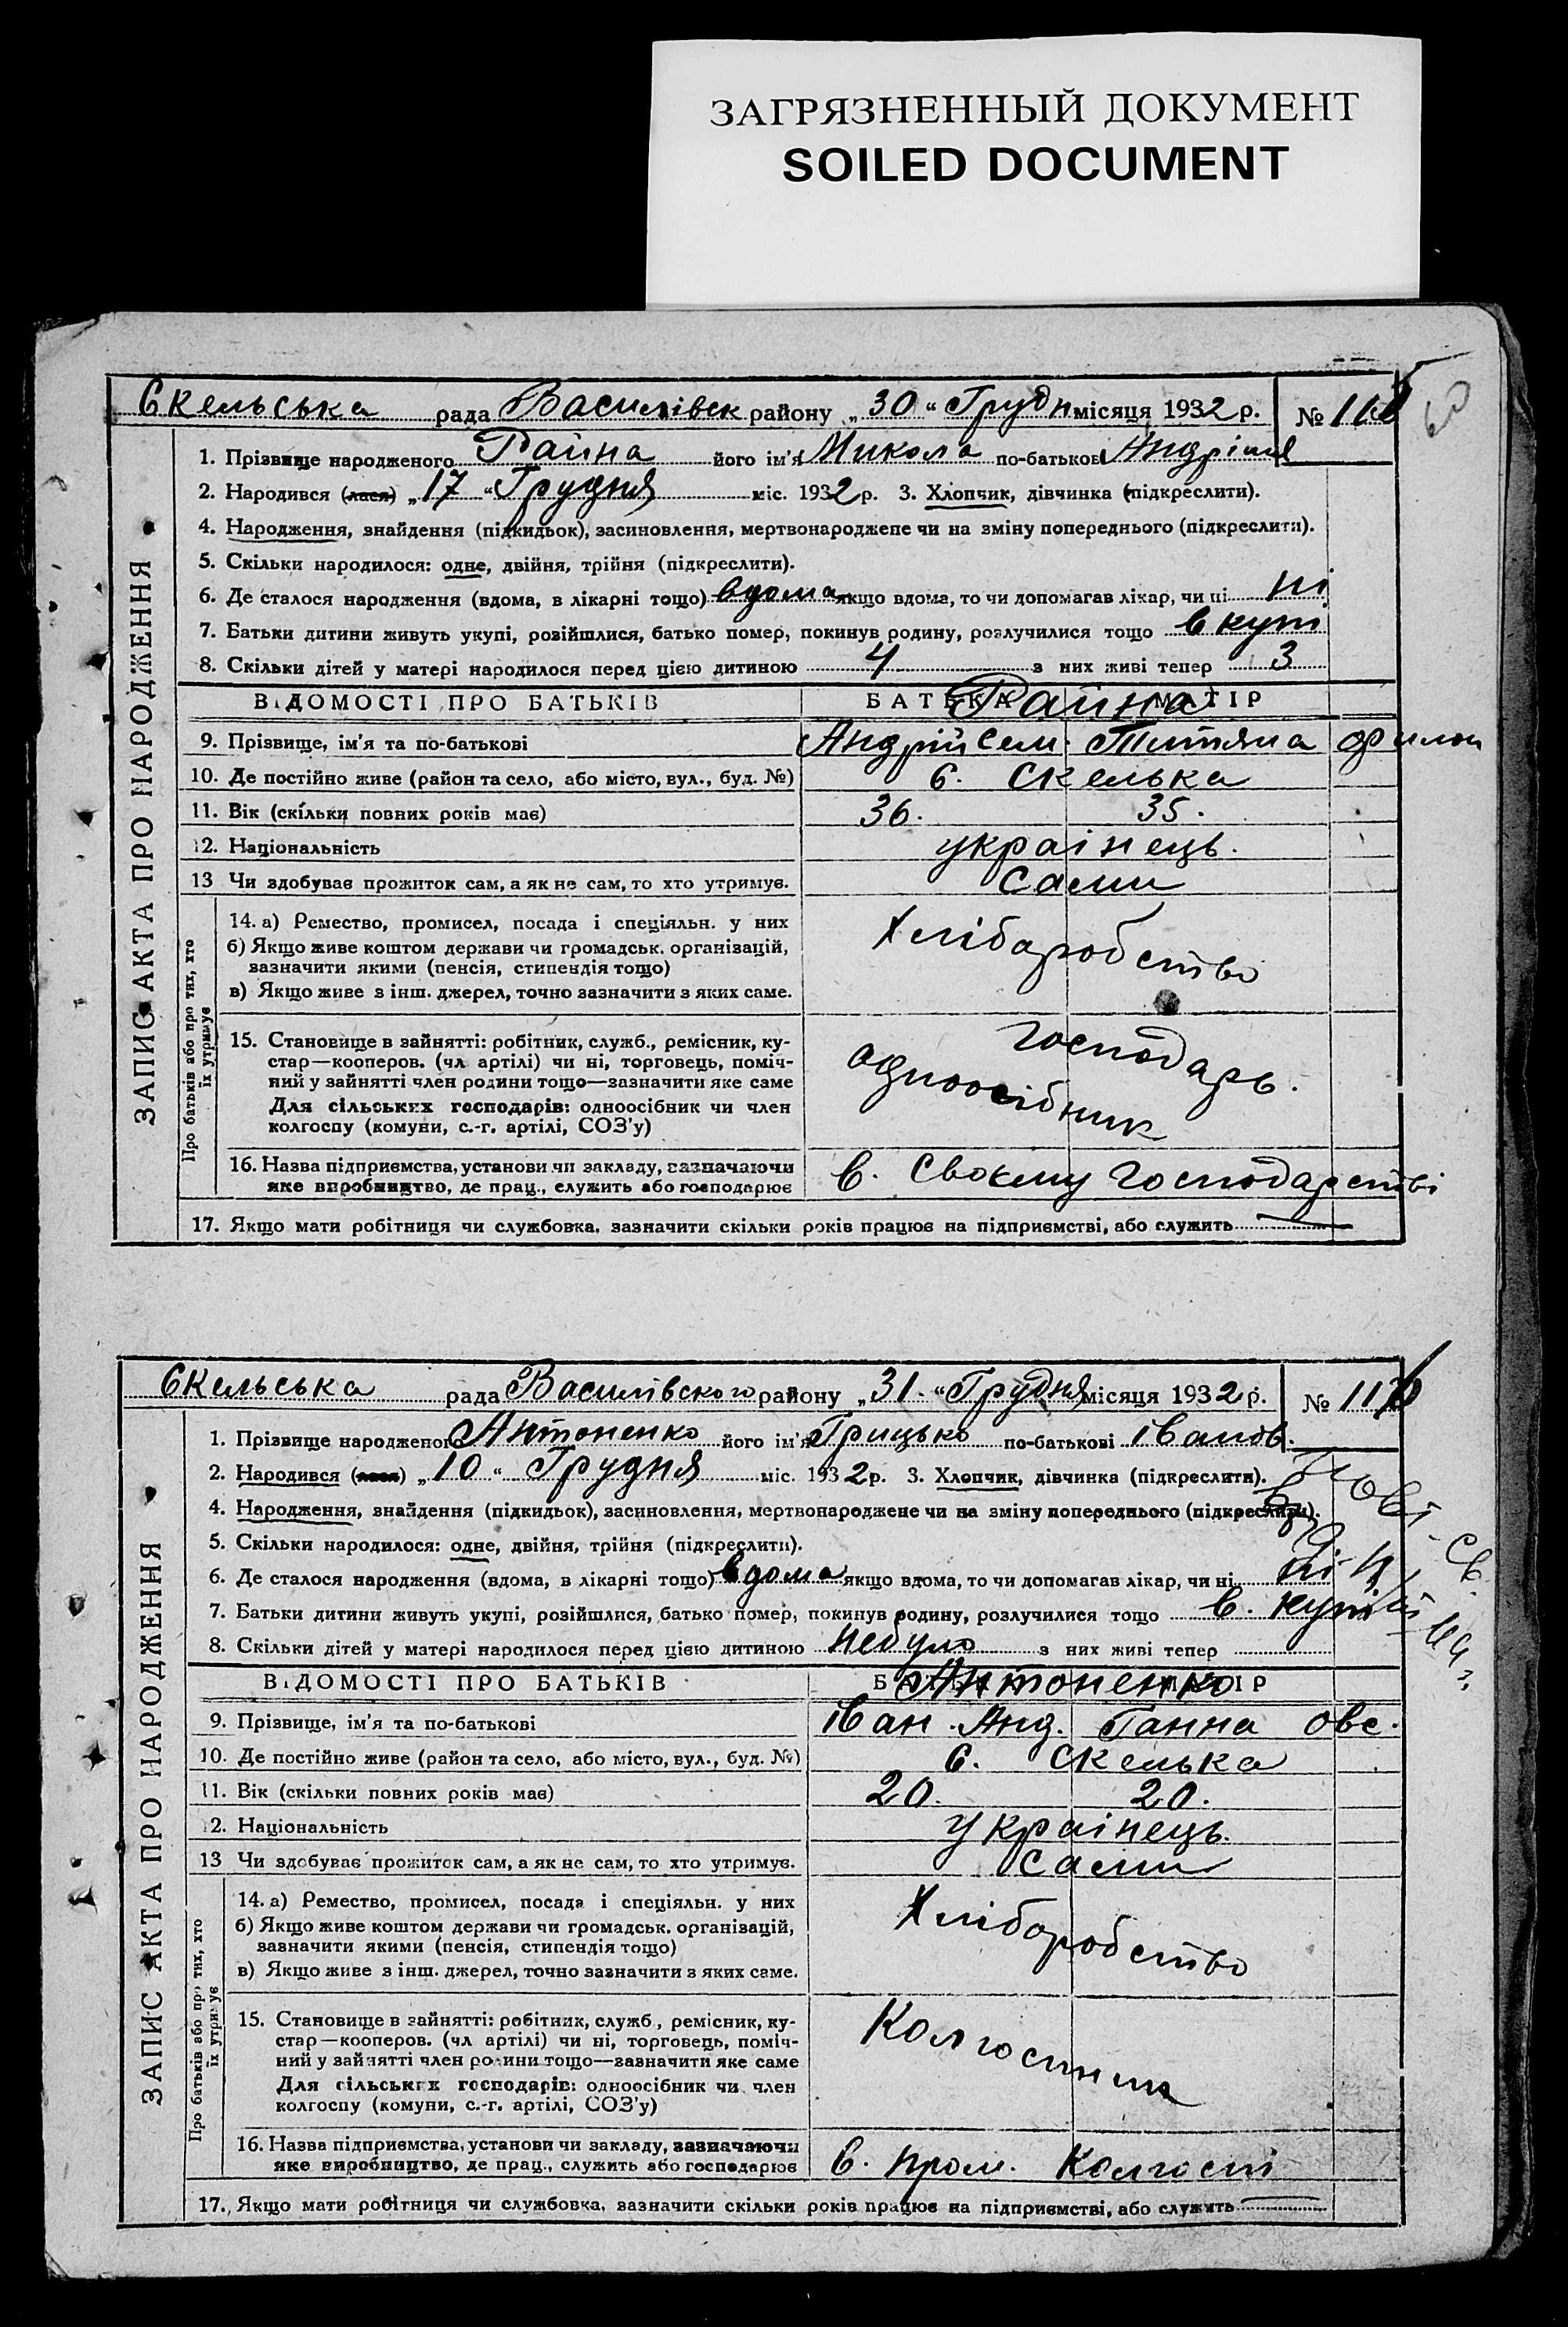 ЗАГРЯЗНЕННЫЙ ДОКУМЕНТ
SOILED DOCUMENT
Скельська рада Василівск району „30“ Грудн місяця 1932 р. №
1. Прізвище народженого Райна його ім'я Микола по-батькові
2. Народився (лася) „17“ Грудня міс. 1932 р. 3. Хлопчик, дівчинка (підкреслити).
4. Народження, знайдення (підкидьок), засиновлення, мертвонароджене чи на зміну попереднього (підкреслити).
5. Скільки народилося: одне, двійня, трійня (підкреслити).
6. Де сталося народження (вдома, в лікарні тощо) вдома якщо вдома, то чи допомагав лікар, чи ні ні
7. Батьки дитини живуть укупі, розійшлися, батько помер, покинув родину, розлучилися тощо в купі
8. Скільки дітей у матері народилося перед цією дитиною 4 з них живі тепер 3
ВІДОМОСТІ ПРО БАТЬКІВ БАТЬКА МАТІР
Райна
9. Прізвище, ім'я та по-батькові Андрій Сем. Титяна Филон
10. Де постійно живе (район та село, або місто, вул., буд. №) с. Скелька
11. Вік (скільки повних років має) 36. 35.
12. Національність украінець.
13 Чи здобуває прожиток сам, а як не сам, то хто утримує. Сами
14. а) Ремество, промисел, посада і спеціяльн. у них
б) Якщо живе коштом держави чи громадськ. організацій,
зазначити якими (пенсія, стипендія тощо)
в) Якщо живе з інш. джерел, точно зазначити з яких саме.
Хлібаробство
15. Становище в зайнятті: робітник, служб., ремісник, ку-
стар—кооперов. (чл артілі) чи ні, торговець, поміч-
ний у зайнятті член родини тощо—зазначити яке саме
Для сільських господарів: одноосібник чи член
колгоспу (комуни, с.-г. артілі, СОЗ'у)
господарь.
одноосібник
16. Назва підприємства, установи чи закладу, зазначаючи
яке виробництво, де прац., служить або господарює
в. Своєму господарстві
17. Якщо мати робітниця чи службовка, зазначити скільки років працює на підприємстві, або служить —
ЗАПИС АКТА ПРО НАРОДЖЕННЯ
Про батьків або про тих, хто
їх утримує
Скельська рада Василівского району „31.“ Грудня місяця 1932 р. №
1. Прізвище народженого Антоненко його ім'я Грицько по-батькові івanoв.
2. Народився (лася) „10“ Грудня міс. 1932 р. 3. Хлопчик, дівчинка (підкреслити).
4. Народження, знайдення (підкидьок), засиновлення, мертвонароджене чи на зміну попереднього (підкреслити).
5. Скільки народилося: одне, двійня, трійня (підкреслити).
6. Де сталося народження (вдома, в лікарні тощо) вдома якщо вдома, то чи допомагав лікар, чи ні ні
7. Батьки дитини живуть укупі, розійшлися, батько помер, покинув родину, розлучилися тощо в. купі
8. Скільки дітей у матері народилося перед цією дитиною небуло з них живі тепер
ВІДОМОСТІ ПРО БАТЬКІВ БАТЬКА МАТІР
Антоненко
9. Прізвище, ім'я та по-батькові іван. Анд. Ганна Овс.
10. Де постійно живе (район та село, або місто, вул., буд. №) с. Скелька
11. Вік (скільки повних років має) 20. 20.
12. Національність украінець.
13 Чи здобуває прожиток сам, а як не сам, то хто утримує. Сами
14. а) Ремество, промисел, посада і спеціяльн. у них
б) Якщо живе коштом держави чи громадськ. організацій,
зазначити якими (пенсія, стипендія тощо)
в) Якщо живе з інш. джерел, точно зазначити з яких саме.
Хлібаробство
15. Становище в зайнятті: робітник, служб., ремісник, ку-
стар—кооперов. (чл артілі) чи ні, торговець, поміч-
ний у зайнятті член родини тощо—зазначити яке саме
Для сільських господарів: одноосібник чи член
колгоспу (комуни, с.-г. артілі, СОЗ'у)
Колгоспник
16. Назва підприємства, установи чи закладу, зазначаючи
яке виробництво, де прац., служить або господарює
в. пром. Колгоспі
17. Якщо мати робітниця чи службовка, зазначити скільки років працює на підприємстві, або служить —
ЗАПИС АКТА ПРО НАРОДЖЕННЯ
Про батьків або про тих, хто
їх утримує